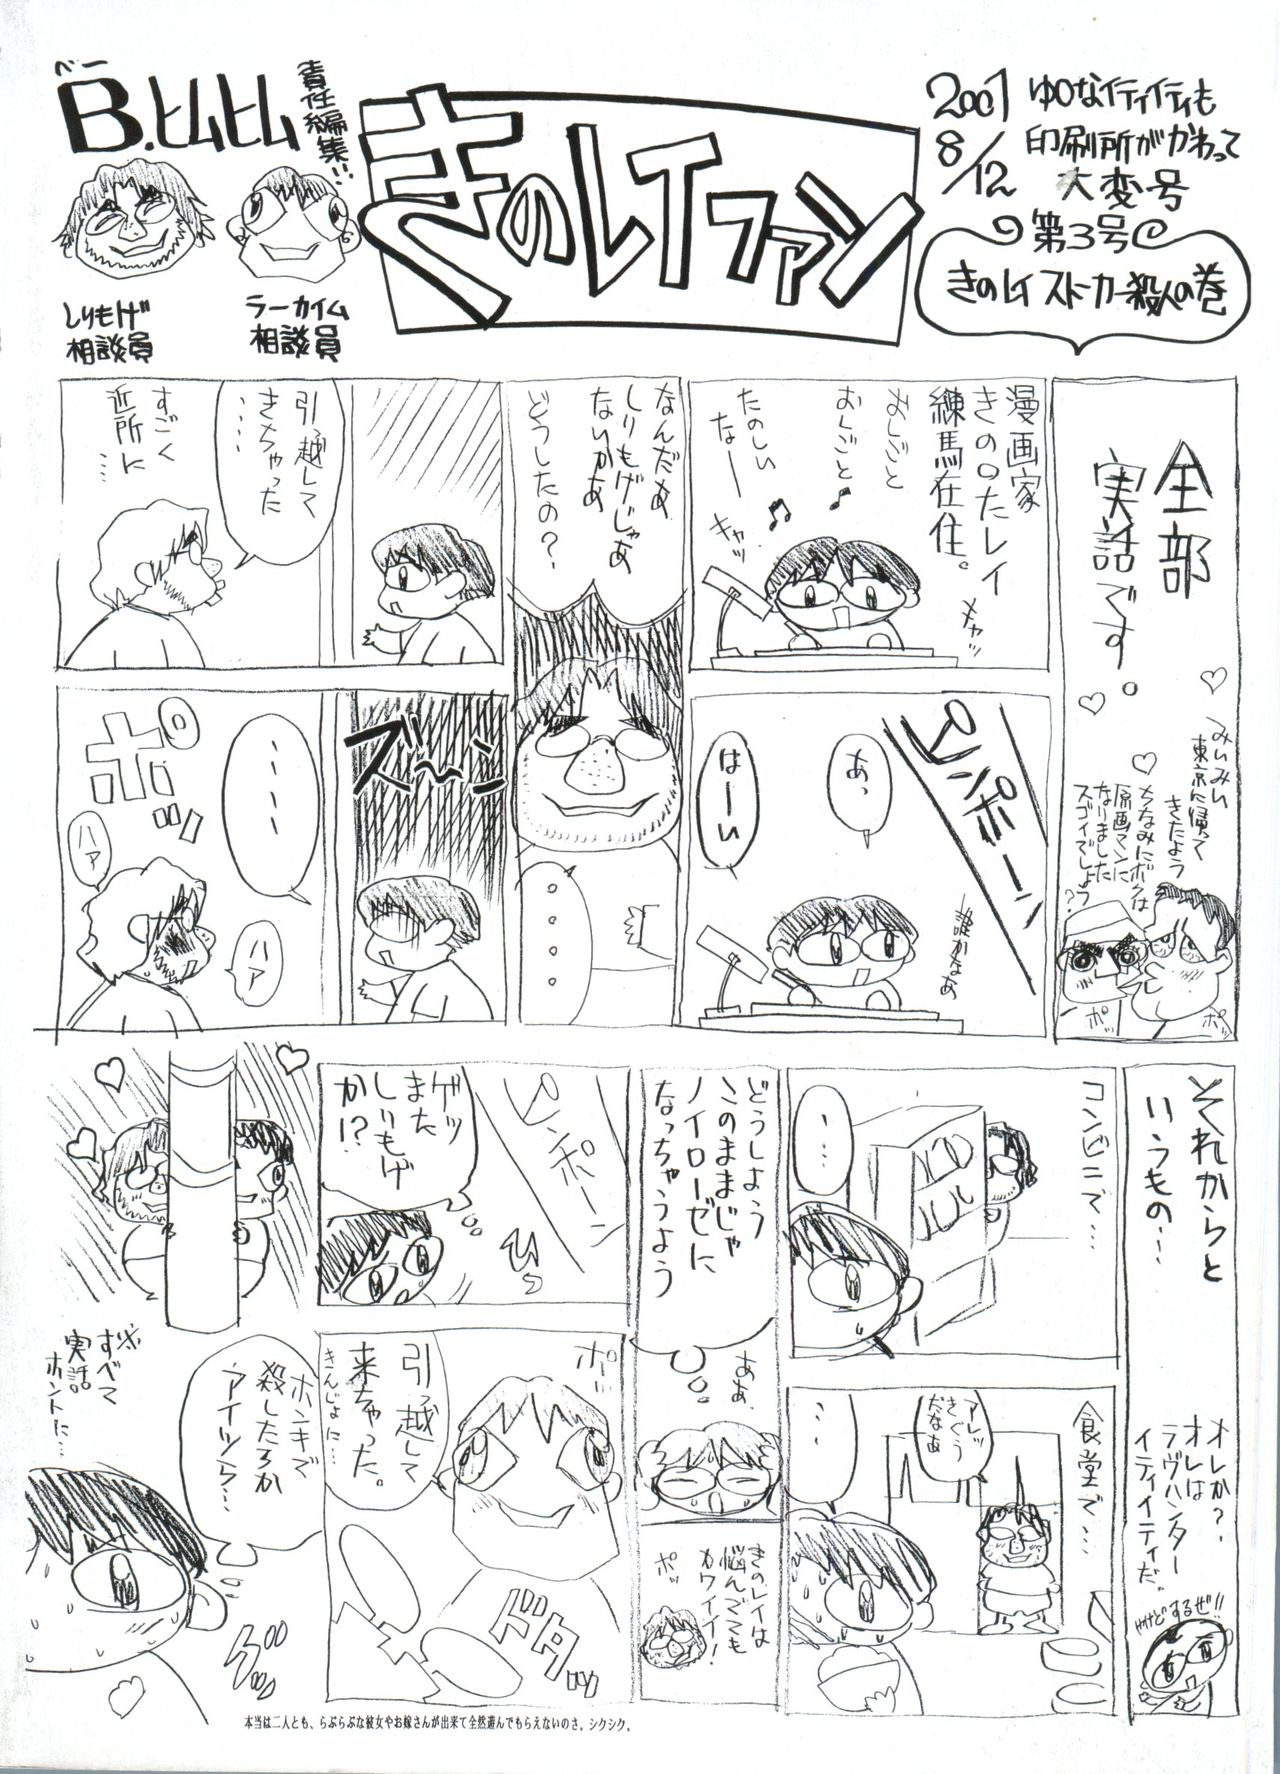 2001 8/12
ゆのなイティイティも
印刷所がかわって
大変号
第3号
きのレイ ストーカー殺人の巻
きのレイファン
責任編集!!
べー
B.ヒムヒム
ラーカイム
相談員
しりもげ
相談員
全部
実話です。
みぃみぃ
東京に帰って
きたよう
ちなみにボクは
原画マンに
なりました
スゴイでしょう
?
ポッ
ポッ
漫画家
きの○たレイ
練馬在住。
おしごと
おしごと
たのしい
なー
キャッ
キャッ
ピンポーン
あっ
はーい
誰かなあ
なんだぁ
しりもげじゃぁ
ないかぁ
どうしたの?
・・・・
引っ越して
きちゃった
・・・・
すごく
近所に
・・・
ズ〜〜ン
・・・・
ポッ
ハァ
ハァ
それからと
いうもの…
オレか?
オレは
ラヴハンター
イティイティだ。
ヤケドするぜ!!
コンビニで…
・・・
食堂で…
アレッ
きぐう
だなぁ
・・・
どうしよう
このままじゃ
ノイローゼに
なっちゃうよう
ああ
きのレイは
悩んでても
カワイイ!
ポッ
ピンポーン
ゲッ
また
しりもげ
か!?
ひっ
ポッ
引っ越して
来ちゃった。
きんじょに…
ドタッ
ホンキで
殺したろか
アイツら…
※すべて
実話
ホントに…
本当は二人とも、らぶらぶな彼女やお嫁さんが出来て全然遊んでもらえないのさ。シクシク。